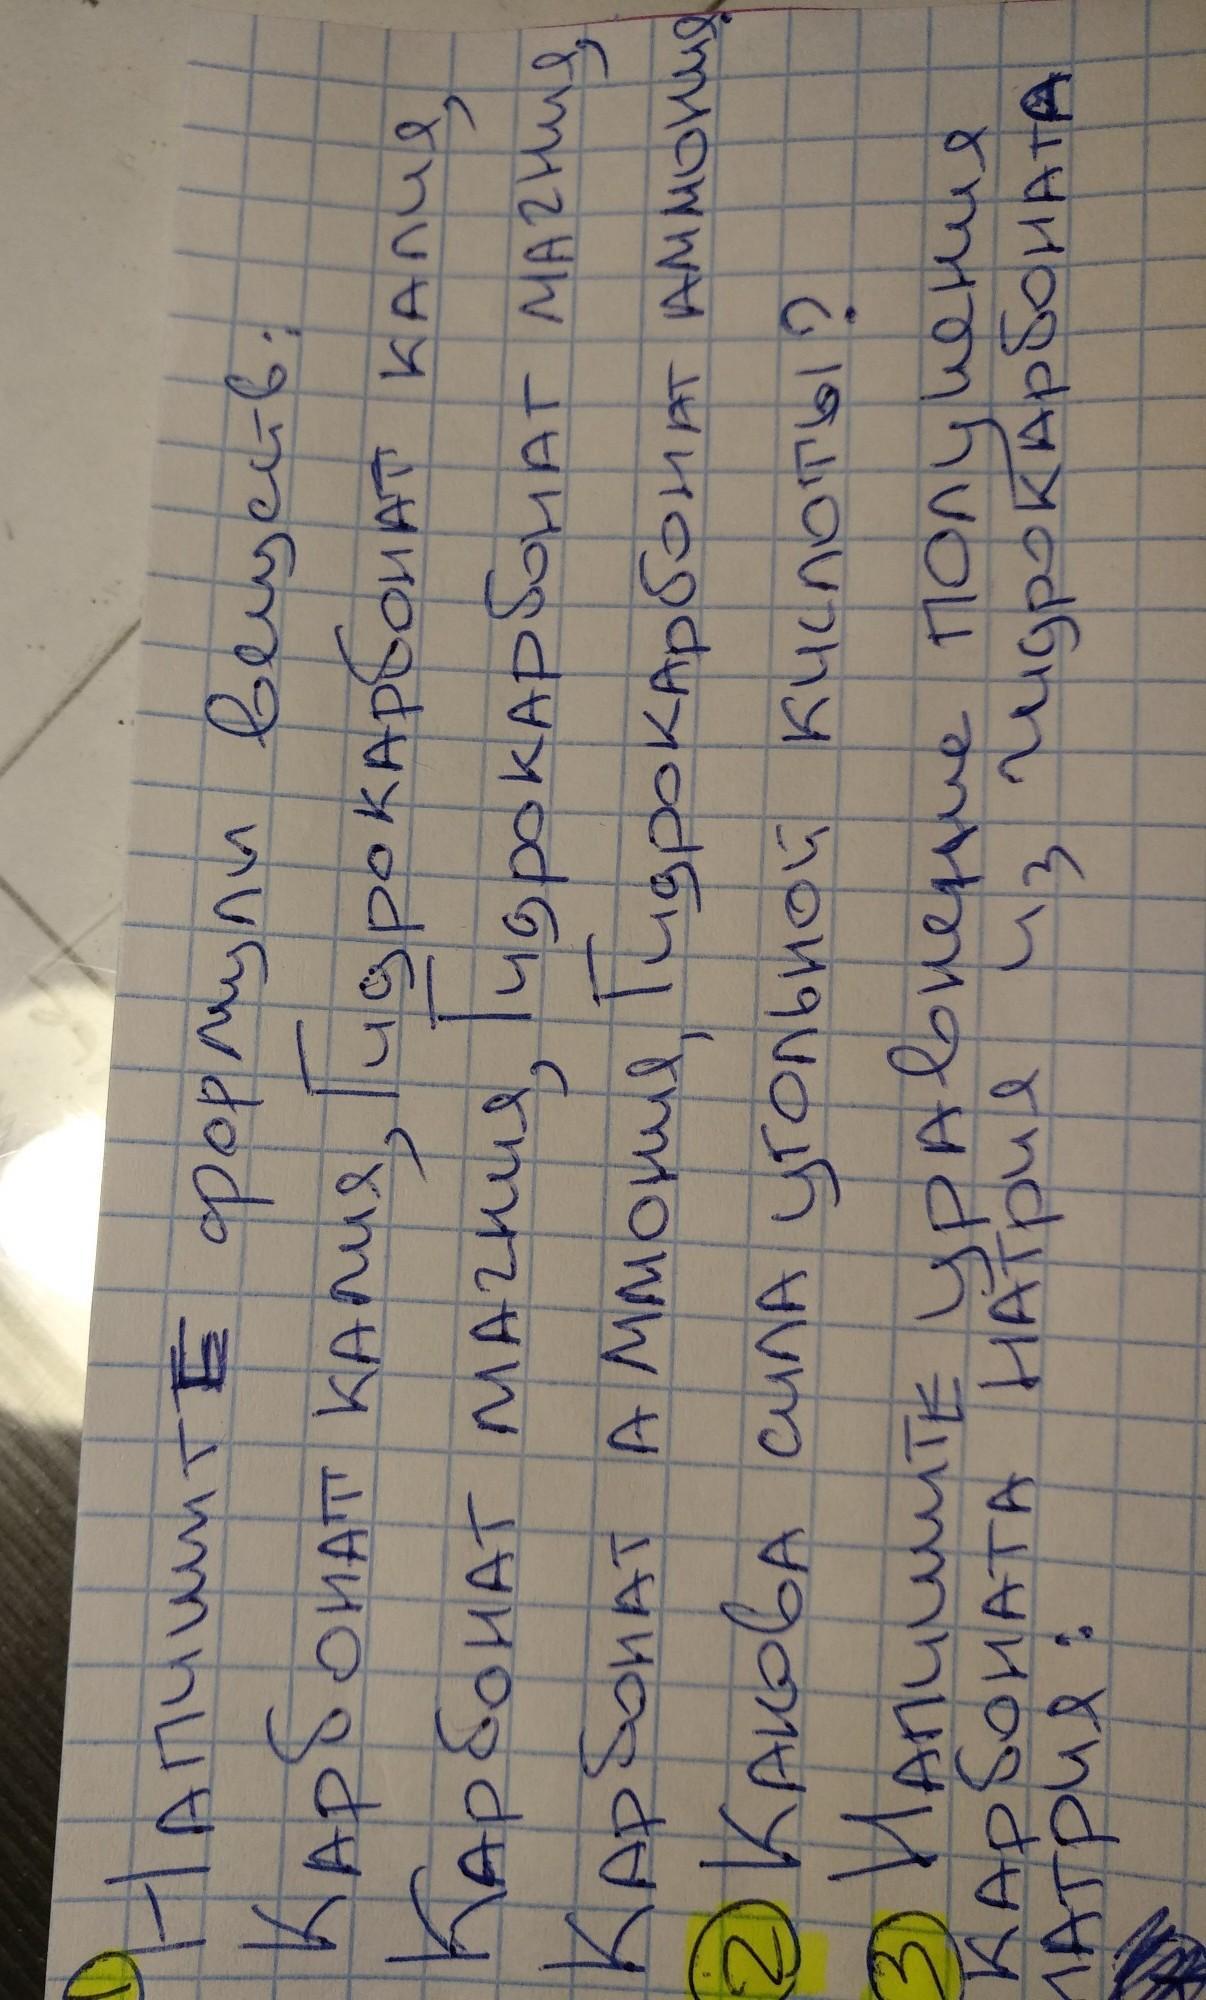 1 Напишите формули веществ:
Карбонат калия, Гидрокарбонат калия,
Карбонат магния, Гидрокарбонат магния,
Карбонат аммония, Гидрокарбонат аммония.
2 Какова сила угольной кислоты?
3 Напишите уравнение получения
карбоната натрия из гидрокарбоната
натрия: